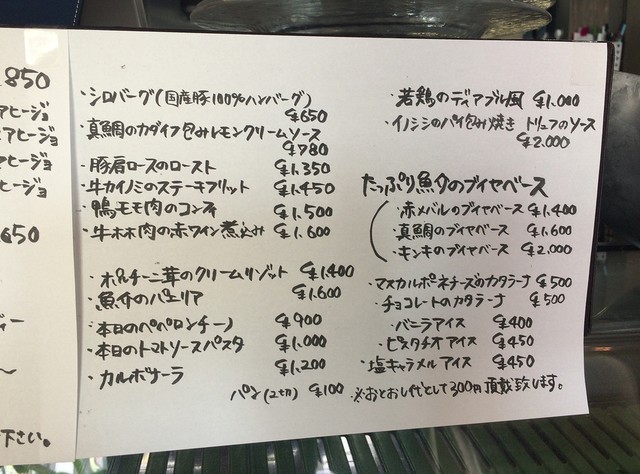 850
アヒージョ
アヒージョ
アヒージョ
ヒージョ
650
ディー
〜
下さい。
・シロバーグ(国産豚100%ハンバーグ)
¥650
・真鯛のカダイフ包みレモンクリームソース
¥780
・豚肩ロースのロースト ¥1.350
・牛カイノミのステーキフリット ¥1.450
・鴨モモ肉のコンフィ ¥1.500
・牛ホホ肉の赤ワイン煮込み ¥1.600
・ポルチーニ茸のクリームリゾット ¥1.400
・魚介のパエリア ¥1.600
・本日のペペロンチーノ ¥900
・本日のトマトソースパスタ ¥1.000
・カルボナーラ ¥1.200
パン(2切) ¥100
・若鶏のディアブル風 ¥1.000
・イノシシのパイ包み焼き トリュフのソース
¥2.000
たっぷり魚介のブイヤベース
・赤メバルのブイヤベース ¥1.400
・真鯛のブイヤベース ¥1.600
・キンキのブイヤベース ¥2.000
・マスカルポーネチーズのカタラーナ ¥500
・チョコレートのカタラーナ ¥500
・バニラアイス ¥400
・ピスタチオアイス ¥450
・塩キャラメルアイス ¥450
※おとおし代として300円頂戴致します。